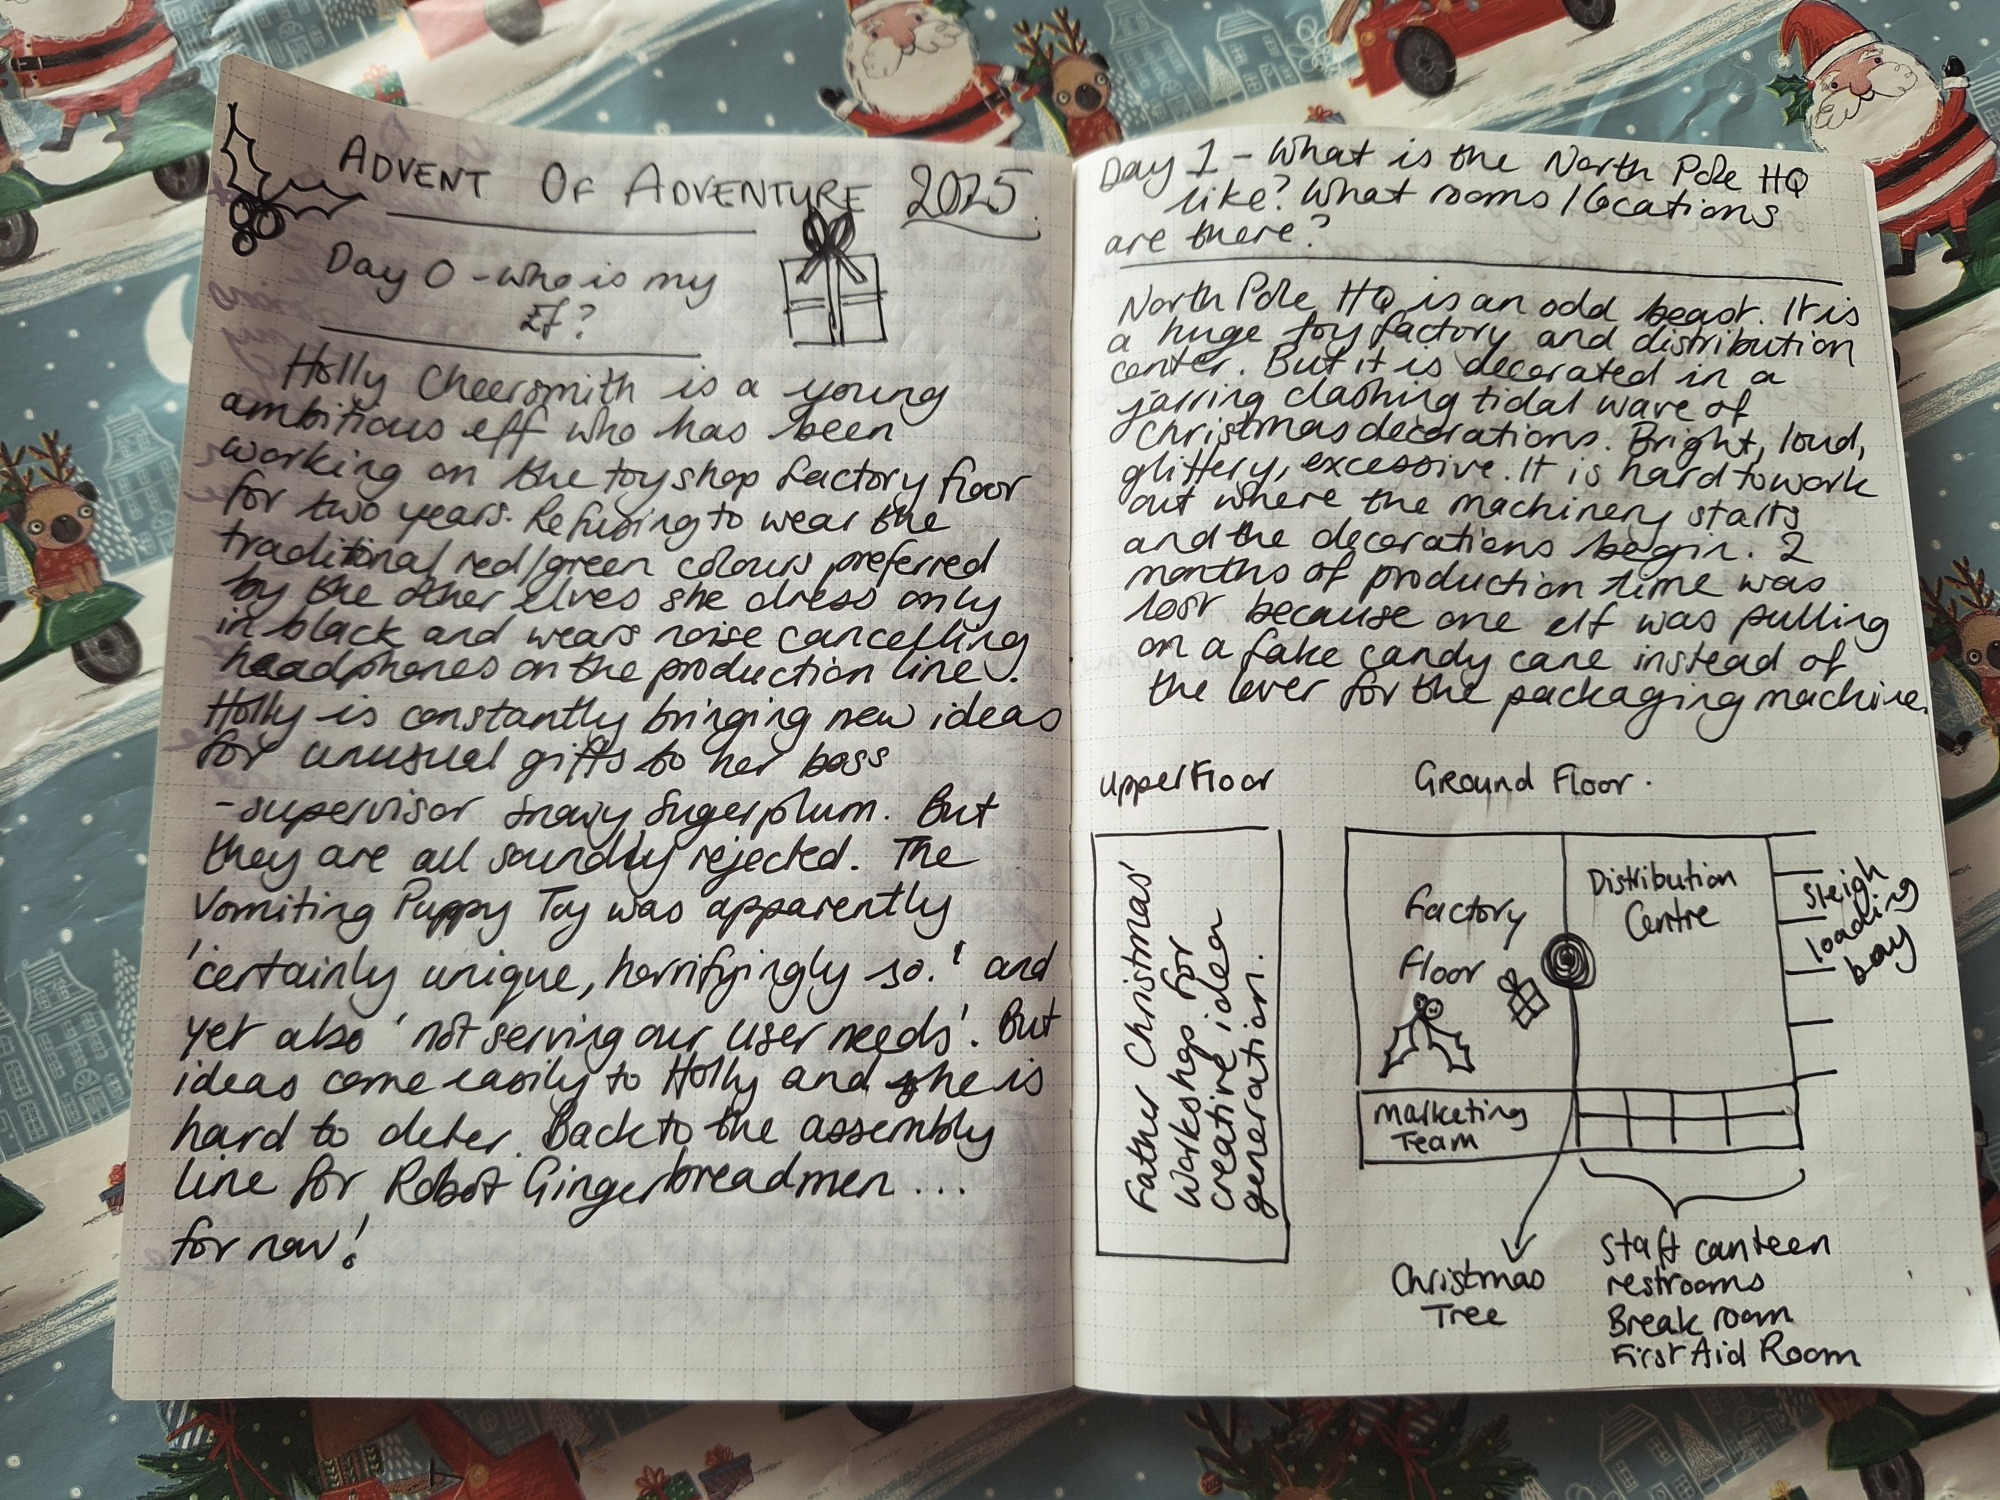 ADVENT OF ADVENTURE 2025.
Day 0 - who is my
Elf?
Holly Cheersmith is a young
ambitious elf who has been
working on the toyshop factory floor
for two years. Refusing to wear the
traditional red/green colours preferred
by the other elves she dress only
in black and wears noise cancelling
headphones on the production line.
Holly is constantly bringing new ideas
for unusual gifts to her boss
- supervisor Snowy Sugerplum. But
they are all soundly rejected. The
Vomiting Puppy Toy was apparently
'certainly unique, horrifyingly so.' and
yet also 'not serving our user needs'. But
ideas come easily to Holly and she is
hard to deter. Back to the assembly
line for Robot Gingerbreadmen ...
for now!
Day 1 - What is the North Pole HQ
like? What rooms / locations
are there?
North Pole HQ is an odd beast. It is
a huge toy factory and distribution
center. But it is decorated in a
jarring clashing tidal wave of
Christmas decorations. Bright, loud,
glittery, excessive. It is hard to work
out where the machinery starts
and the decorations begin. 2
months of production time was
lost because one elf was pulling
on a fake candy cane instead of
the lever for the packaging machine.
Upper Floor
Father Christmas'
Workshop for
creative idea
generation.
Ground Floor.
Factory
Floor
Distribution
Centre
Sleigh
loading
bay
Marketing
Team
Christmas
Tree
Staff canteen
restrooms
Break room
First Aid Room